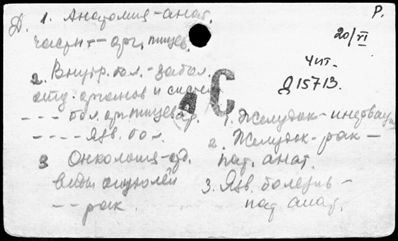 Д. 1. Анатомия - анат.
частн - - орг. пищев.
2. Внутр. бол. - забол.
отд. органов и систем
- - - - бол. орг. пищев
- - - - Язв. бол.
3 Онкология - отд.
виды опухолей
- - рак.
Р.
20/VI
Чит.
Д 15713.
АС
1. Желудок - иннервац
2. Желудок - рак -
пат. анат.
3. Язв. болезнь -
пат анат.